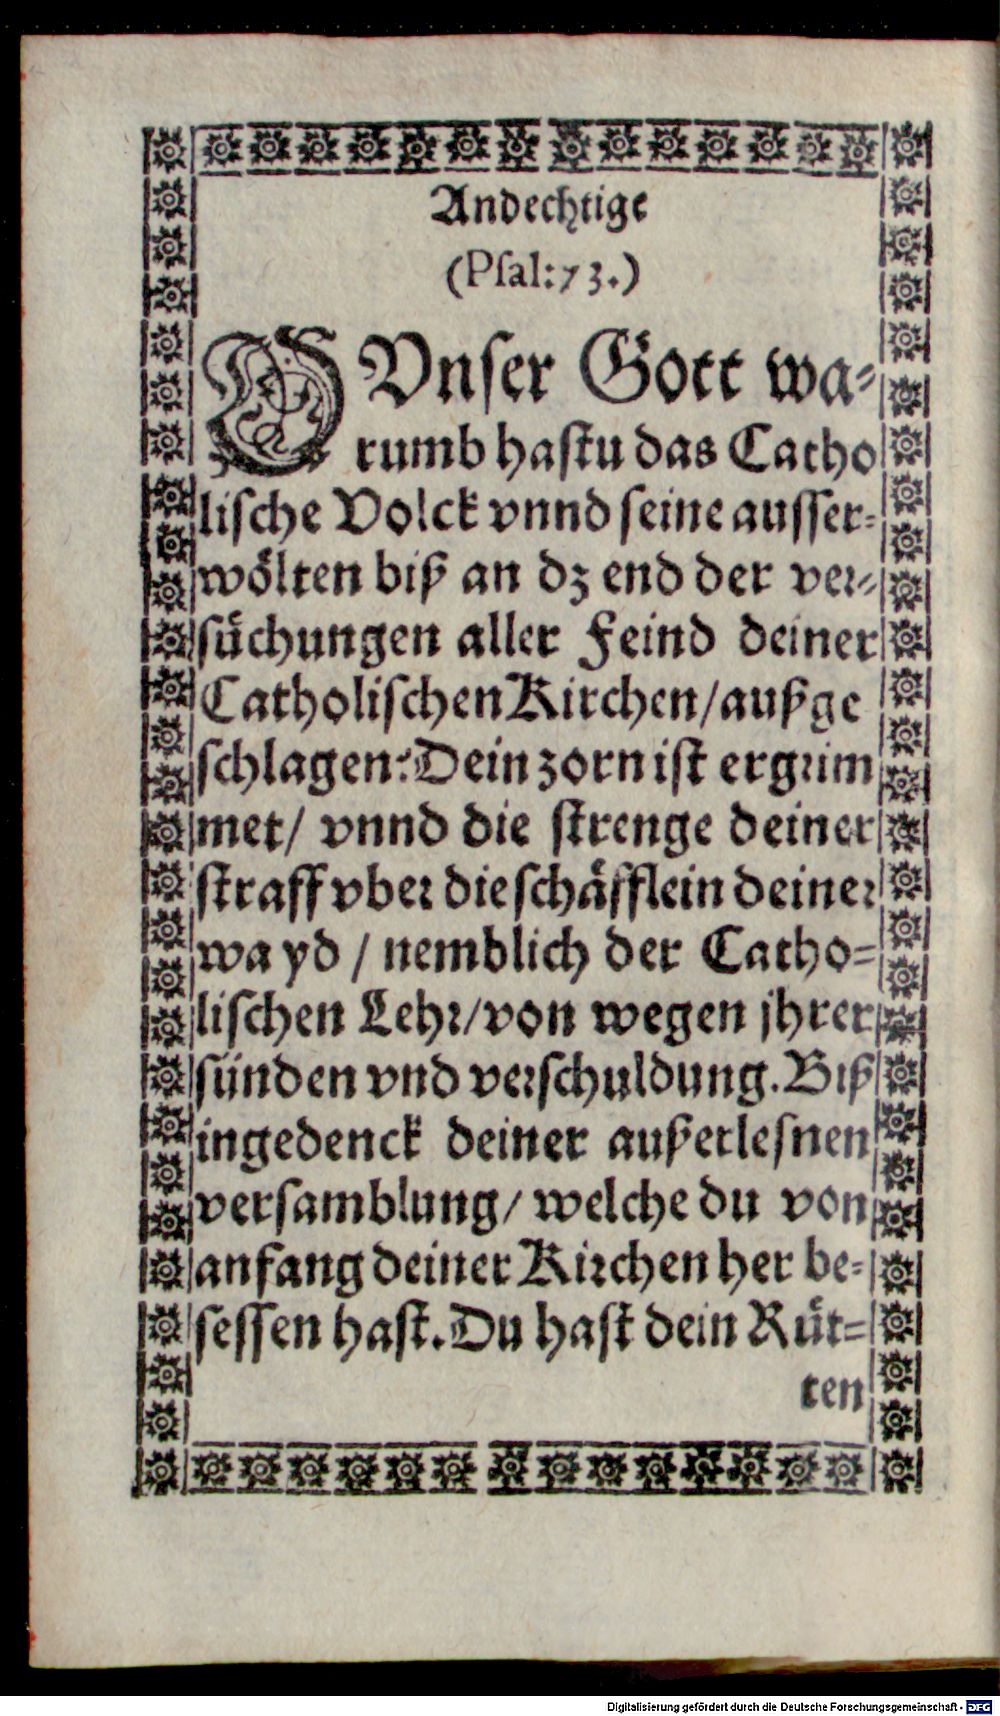 Andechtige
(Psal:73.)
O Vnser Gott wa-
rumb hastu das Catho
lische Volck vnnd seine ausser-
wölten biß an dz end der ver-
süchungen aller Feind deiner
Catholischen Kirchen/außge
schlagen: Dein zorn ist ergrim
met/ vnnd die strenge deiner
straff vber die schäfflein deiner
wayd / nemblich der Catho-
lischen Lehr/von wegen jhrer
sünden vnd verschuldung. Biß
ingedenck deiner außerlesnen
versamblung/ welche du von
anfang deiner Kirchen her be-
sessen hast. Du hast dein Rüt-
ten
Digitalisierung gefördert durch die Deutsche Forschungsgemeinschaft - DFG